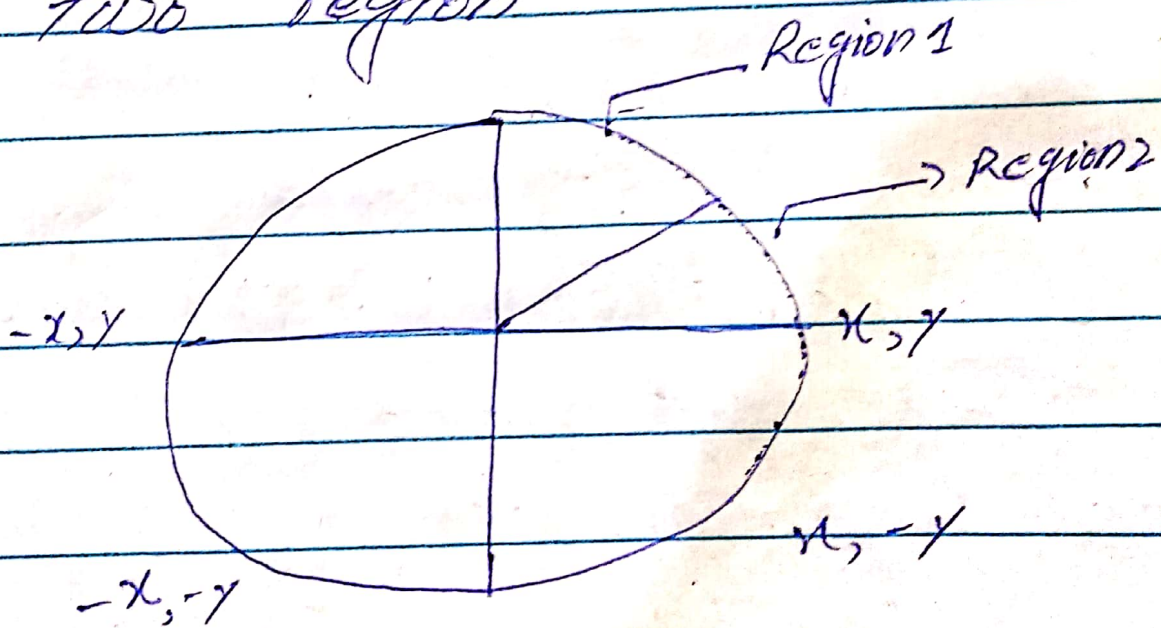 region
Region1
Region2
-x,y
x,y
x,-y
-x,-y